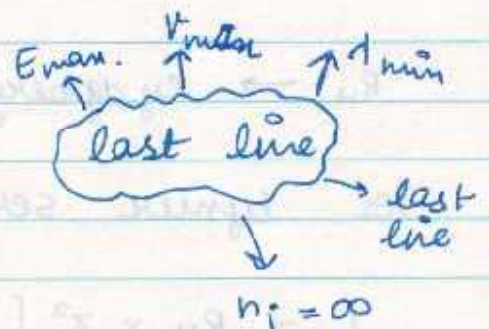 Emax. νmax λmin
last line
last
line
ni = ∞